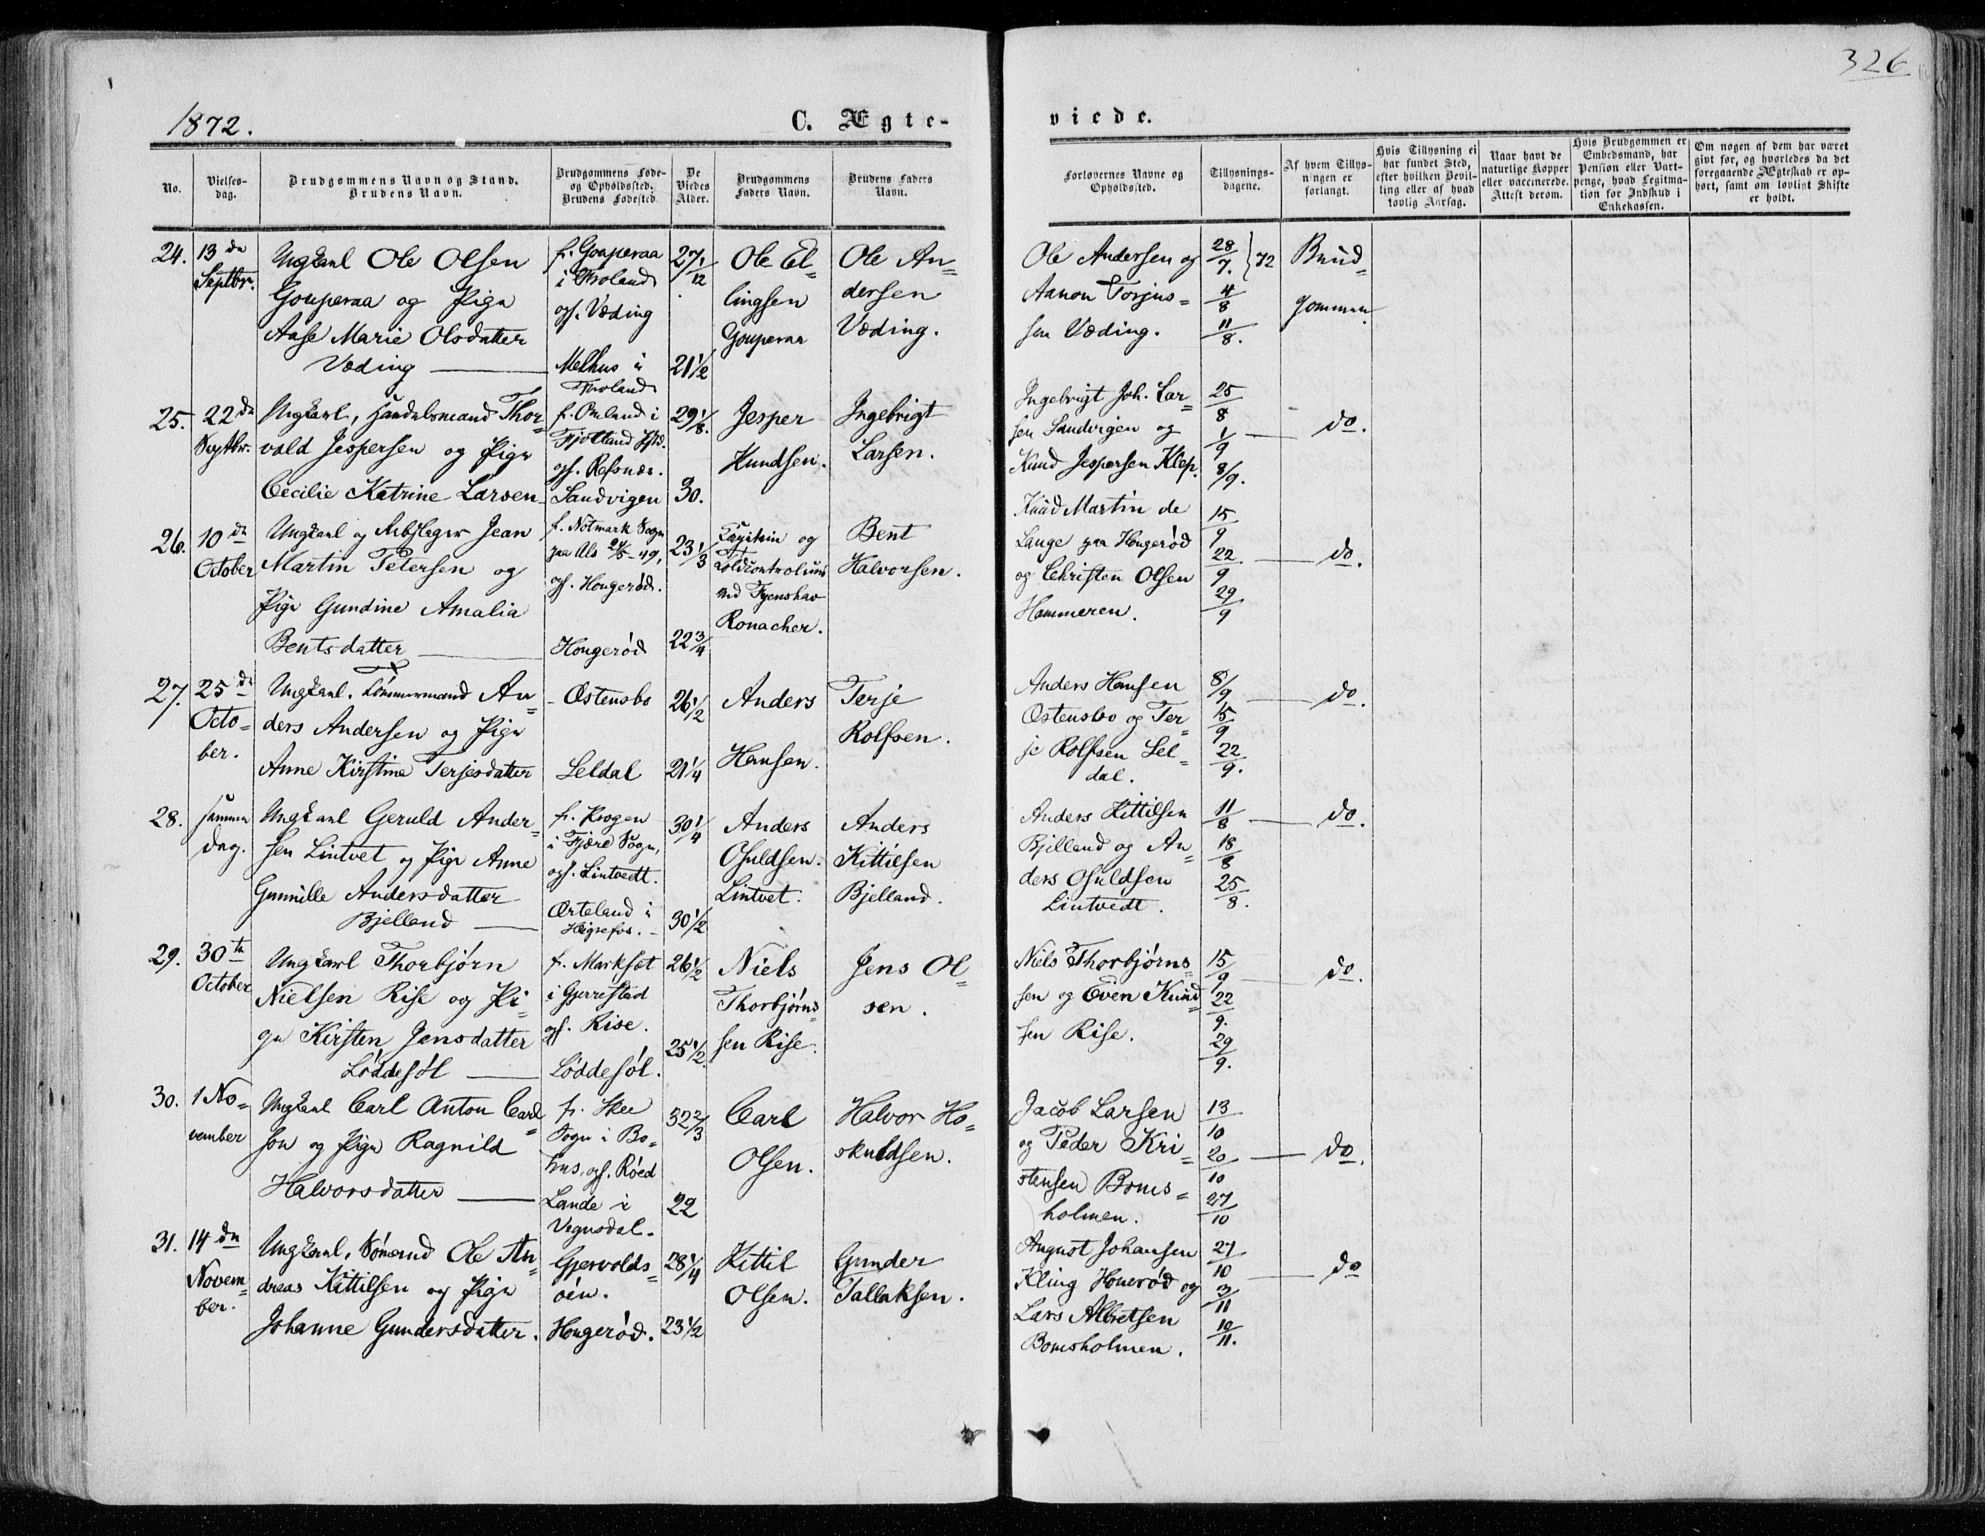 326
1872.
C. Ægte-
viede.
No.
Vielses-
dag.
Brudgommens Navn og Stand.
Brudens Navn.
Brudgommens Føde-
og Opholdssted.
Brudens Fødested.
De
Viedes
Alder.
Brudgommens
Faders Navn.
Brudens Faders
Navn.
Forlovernes Navne og
Opholdssted.
Tillysnings-
dagene.
Af hvem Tillys-
ningen er
forlangt.
Hvis Tillysning ei
har fundet Sted,
efter hvilken Bevil-
ling eller af hvad
lovlig Aarsag.
Naar havt de
naturlige Kopper
eller vaccinerede.
Attest derom.
Hvis Brudgommen er
Embedsmand, har
Pension eller Vart-
penge, hvad Legitima-
tion for Indskud i
Enkekassen.
Om nogen af dem har været
givt før, og hvorledes da det
foregaaende Ægteskab er op-
hørt, samt om lovligt Skifte
er holdt.
24.
13de
Septbr.
Ungkarl Ole Olsen
Gouperaa og Pige
Aase Marie Olsdatter
Væding
f. Gouperaa
i Froland
opf. Væding
Melhus i
Froland
27 1/12
21 1/2
Ole El-
lingsen
Gouperaa
Ole An-
dersen
Væding.
Ole Andersen og
Aanon Torjus-
sen Væding.
28/7. } 72
4/8
11/8.
Brud-
gommen
25.
22de
Septbr.
Ungkarl, Handelsmand Thor-
vald Jespersen og Pige
Cecilie Katrine Larsen
f. Omland i
Fjotland
opf. Refsnæs.
Sandvigen
29 1/8.
30.
Jesper
Knudsen.
Ingebrigt
Larsen.
Ingebrigt Joh. Lar-
sen Sandvigen og
Knud Jespersen Klep.
25/8
1/9
8/9.
do.
26.
10de
October
Ungkarl og Jean
Martin Petersen og
Pige Gundine Amalia
Bentsdatter
f. Notmark Sogn
paa Als 24/5-49,
opf. Hongerød.
Hongerød
23 1/3
22 3/4
Capitain og
Toldcontroleur
ved Fyenshav
Ronacher.
Bent
Halvorsen.
Knud Martin de
Lange paa Hongerød
og Christen Olsen
Hammeren.
15/9
22/9
29/9
do.
27.
25de
Octo-
ber.
Ungkarl. Tømmermand An-
ders Andersen og Pige
Anne Kirstine Terjesdatter
Østensbo
Leldal
26 1/2
21 1/4
Anders
Hansen.
Terje
Rolfsen.
Anders Hansen
Østensbo og Ter-
je Rolfsen Lel-
dal.
8/9
15/9
22/9.
do.
28.
samme
dag.
Ungkarl Geruld Ander-
sen Lintvet og Pige Anne
Gunnille Andersdatter
Bjelland
f. Krogen
i Fjære Sogn,
opf. Lintvedt.
Ørteland i
30 1/4
30 1/2
Anders
Osuldsen
Lintvet.
Anders
Kittilsen
Bjelland.
Anders Kittilsen
Bjelland og An-
ders Osuldsen
Lintvedt.
11/8
18/8
25/8.
do.
29.
30te
October
Ungkarl Thorbjørn
Nielsen Rise og Pi-
ge Kirsten Jensdatter
Løddesøl
f. Marksæt
i Gjerrestad
opf. Rise.
Løddesøl.
26 1/2
25 1/2.
Niels
Thorbjørn-
sen Rise.
Jens Ol-
sen.
Niels Thorbjørn-
sen og Even Knud
sen Rise.
15/9
22/9.
29/9.
do.
30.
1 No-
vember
Ungkarl Carl Anton Carl-
son og Pige Ragnild
Halvorsdatter
f. Skee
Sogn i Bo-
hus, opf. Røed
Lande i
Vegusdal.
32 2/3
22
Carl
Olsen.
Halvor Ho-
skuldsen.
Jacob Larsen
og Peder Kri-
stensen Boms-
holmen.
13/10
20/10
27/10
do.
31.
14de
Novem-
ber.
Ungkarl, Sømand Ole An-
dreas Kittilsen og Pige
Johanne Gundersdatter.
Gjervolds-
øen.
Hongerød.
28 1/4
23 1/2
Kittil
Olsen.
Gunder
Tallaksen.
August Johansen
Kling Honerød og
Lars Albretsen
Bomsholmen.
27/10
3/11
10/11.
do